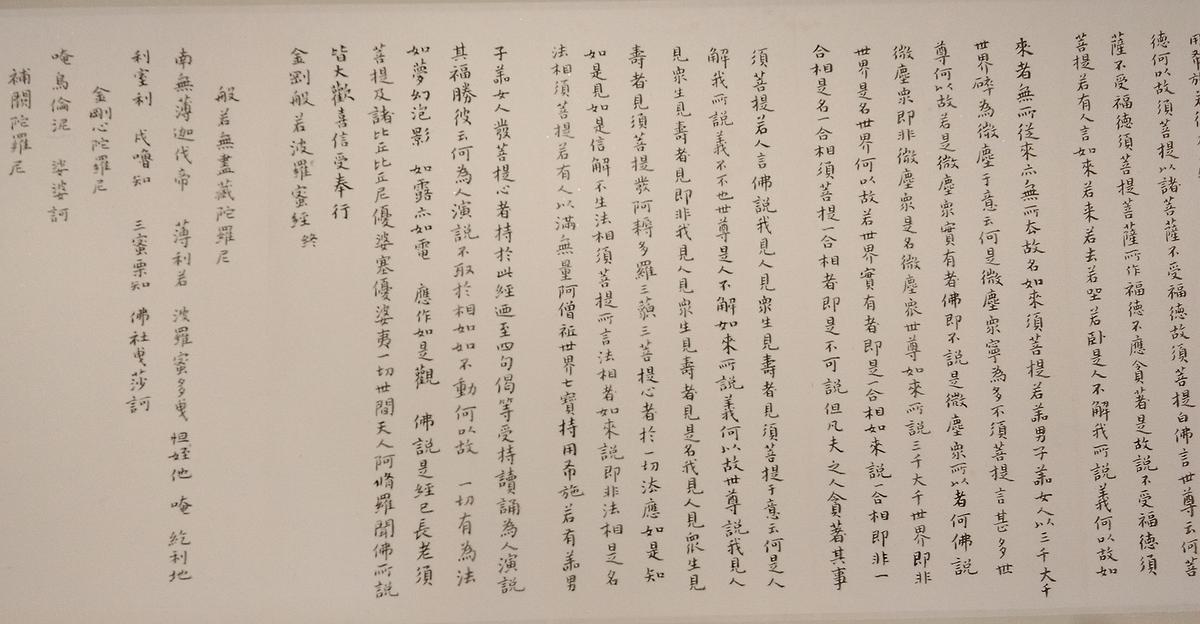 德何以故須菩提以諸菩薩不受福德故須菩提白佛言世尊云何菩
薩不受福德須菩提菩薩所作福德不應貪著是故說不受福德須
菩提若有人言如來若来若去若坐若卧是人不解我所說義何以故如
來者無所從來亦無所去故名如來須菩提若善男子善女人以三千大千
世界碎為微塵于意云何是微塵眾寧為多不須菩提言甚多世
尊何以故若是微塵眾實有者佛即不說是微塵眾所以者何佛說
微塵眾即非微塵眾是名微塵眾世尊如來所說三千大千世界即非
世界是名世界何以故若世界實有者即是一合相如來說一合相即非一
合相是名一合相須菩提一合相者即是不可說但凡夫之人貪著其事
須菩提若人言佛說我見人見眾生見壽者見須菩提于意云何是人
解我所說義不不也世尊是人不解如來所說義何以故世尊說我見人
見眾生見壽者見即非我見人見眾生見壽者見是名我見人見眾生見
壽者見須菩提發阿耨多羅三藐三菩提心者於一切法應如是知
如是見如是信解不生法相須菩提所言法相者如來說即非法相是名
法相須菩提若有人以滿無量阿僧祇世界七寶持用布施若有善男
子善女人發菩提心者持於此經迺至四句偈等受持讀誦為人演說
其福勝彼云何為人演說不取於相如如不動何以故 一切有為法
如夢幻泡影 如露亦如電 應作如是觀 佛說是經已長老須
菩提及諸比丘比丘尼優婆塞優婆夷一切世間天人阿脩羅聞佛所說
皆大歡喜信受奉行
金剛般若波羅蜜經 終
般若無盡藏陀羅尼
南無薄迦伐帝 薄利若 波羅蜜多曳 怛姪他 唵 紇利地
利室利 戍嚕知 三蜜栗知 佛社曳莎訶
金剛心陀羅尼
唵烏倫泥 娑婆訶
補闕陀羅尼